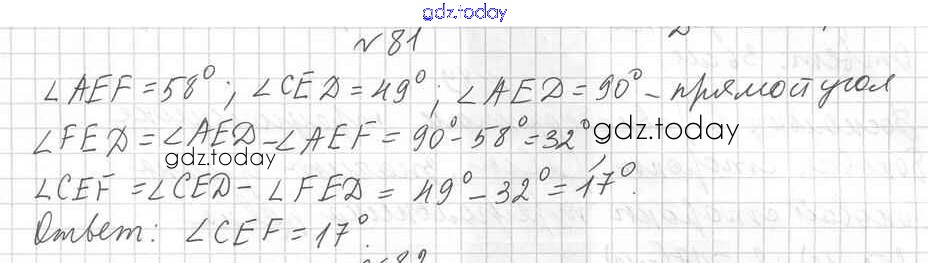 gdz.today
№ 81
∠AEF = 58°; ∠CED = 49°; ∠AED = 90° – прямой угол
∠FED = ∠AED – ∠AEF = 90° – 58° = 32°
gdz.today
gdz.today
∠CEF = ∠CED – ∠FED = 49° – 32° = 17°.
Ответ: ∠CEF = 17°.